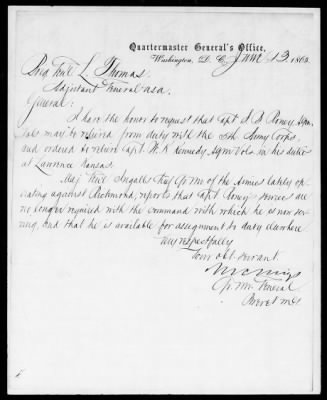 Quartermaster General's Office,
Washington, D. C. June 13, 1865.
Brig Genl L. Thomas.
Adjutant General USA.
General:
I have the honor to request that Capt
may be relieved from duty with the 5th Army Corps,
and ordered to relieve Capt. Kennedy Aqm Vols in his duties
at Lawrence Kansas.
Maj Genl Ingalls Chief Qr Mr of the Armies lately op-
erating against Richmond, reports that Capt services are
no longer required with the command with which he is now ser-
ving, and that he is available for assignment to duty elsewhere
Very respectfully
Your obt. servant.
Qr. Mr. General
Brevet M G